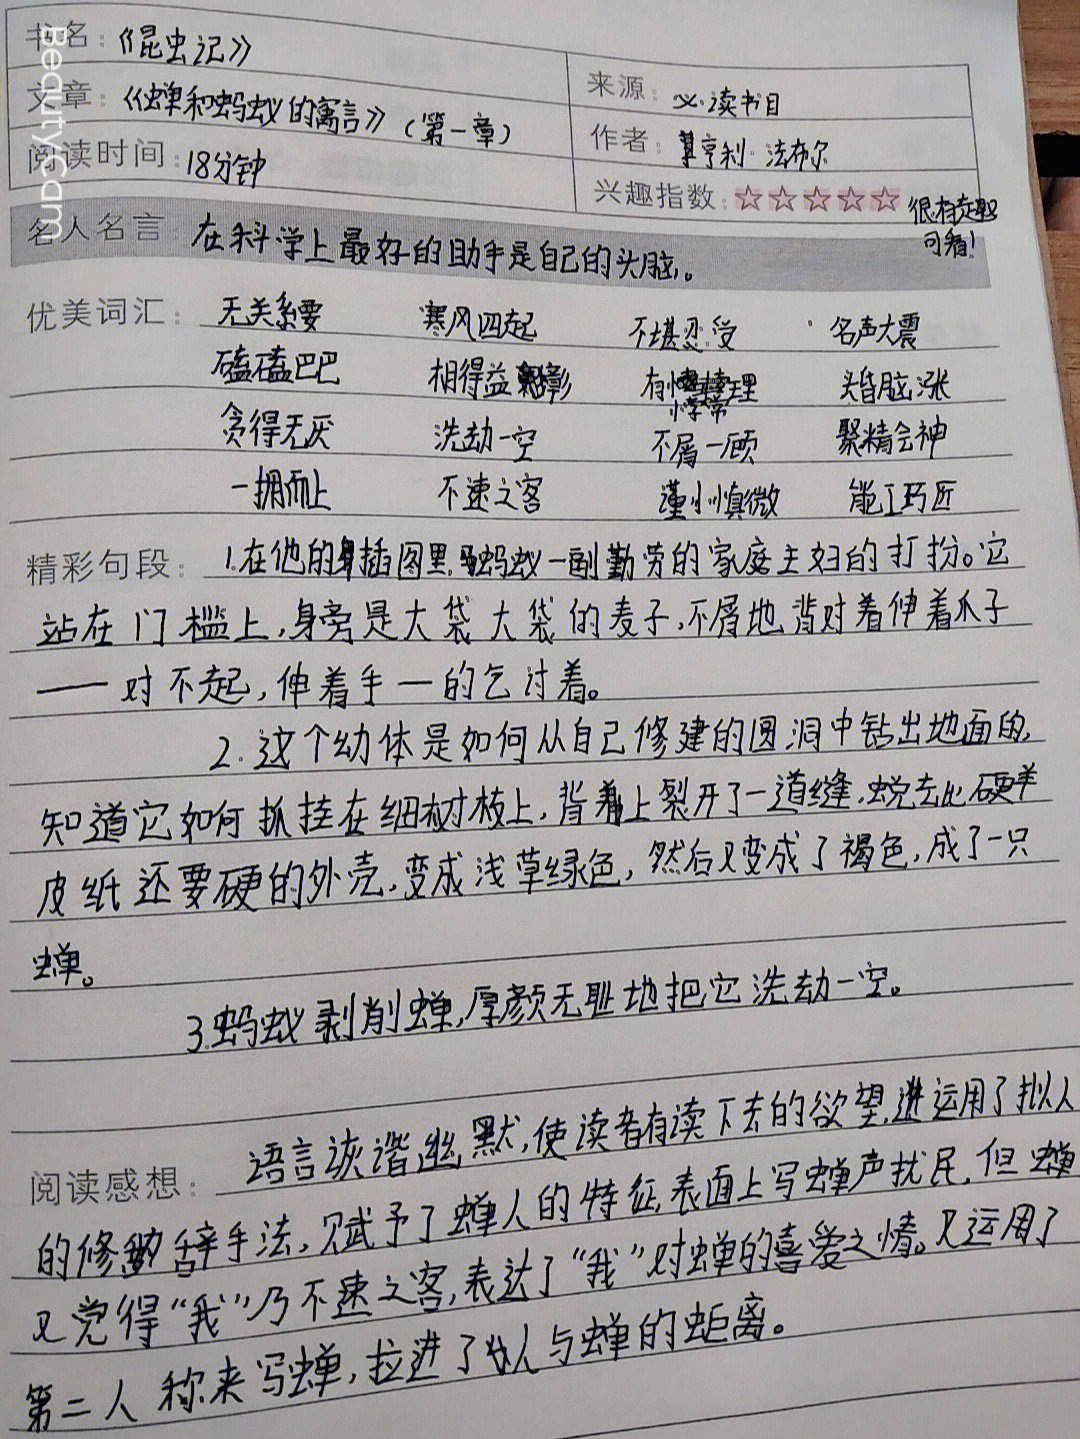 书名：《昆虫记》
文章：《蝉和蚂蚁的寓言》（第一章）
阅读时间：18分钟
来源：必读书目
作者：亨利·法布尔
兴趣指数：☆☆☆☆☆ 很有趣
可看！
名人名言：在科学上最好的助手是自己的头脑。
优美词汇：无关紧要 寒风四起 不堪忍受 名声大震
磕磕巴巴 相得益彰 有悖常理 头昏脑涨
贪得无厌 洗劫一空 不屑一顾 聚精会神
一拥而上 不速之客 谨小慎微 能工巧匠
精彩句段：1.在他的插图里,蚂蚁一副勤劳的家庭主妇的打扮。它
站在门槛上,身旁是大袋大袋的麦子,不屑地背对着伸着爪子
——对不起,伸着手—的乞讨着。
2.这个幼体是如何从自己修建的圆洞中钻出地面的,
知道它如何抓挂在细树枝上,背上裂开了一道缝,蜕去比硬羊
皮纸还要硬的外壳,变成浅草绿色,然后又变成了褐色,成了一只
蝉。
3.蚂蚁剥削蝉,厚颜无耻地把它洗劫一空。
阅读感想：语言诙谐幽默,使读者有读下去的欲望,运用了拟人
的修辞手法,赋予了蝉人的特征,表面上写蝉声扰民,但蝉
又觉得“我”乃不速之客,表达了“我”对蝉的喜爱之情。又运用了
第二人称来写蝉,拉进了人与蝉的距离。
BeautyCam